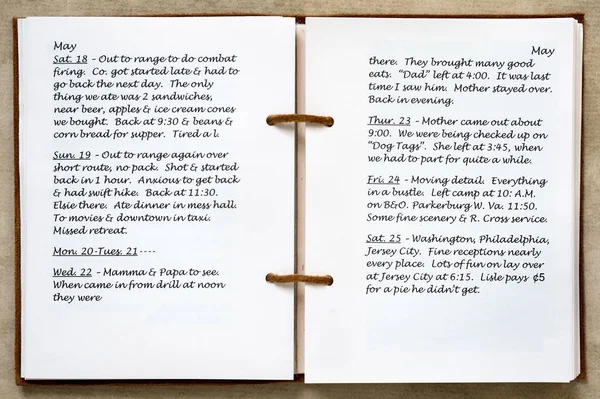 May
Sat. 18 - Out to range to do combat
firing. Co. got started late & had to
go back the next day. The only
thing we ate was 2 sandwiches,
near beer, apples & ice cream cones
we bought. Back at 9:30 & beans &
corn bread for supper. Tired a l.
Sun. 19 - Out to range again over
short route, no pack. Shot & started
back in 1 hour. Anxious to get back
& had swift hike. Back at 11:30.
Elsie there. Ate dinner in mess hall.
To movies & downtown in taxi.
Missed retreat.
Mon. 20-Tues. 21 ----
Wed. 22 - Mamma & Papa to see.
When came in from drill at noon
they were
May
there. They brought many good
eats. "Dad" left at 4:00. It was last
time I saw him. Mother stayed over.
Back in evening.
Thur. 23 - Mother came out about
9:00. We were being checked up on
"Dog Tags". She left at 3:45, when
we had to part for quite a while.
Fri. 24 - Moving detail. Everything
in a bustle. Left camp at 10: A.M.
on B&O. Parkerburg W. Va. 11:50.
Some fine scenery & R. Cross service.
Sat. 25 - Washington, Philadelphia,
Jersey City. Fine receptions nearly
every place. Lots of fun on lay over
at Jersey City at 6:15. Lisle pays ¢5
for a pie he didn't get.